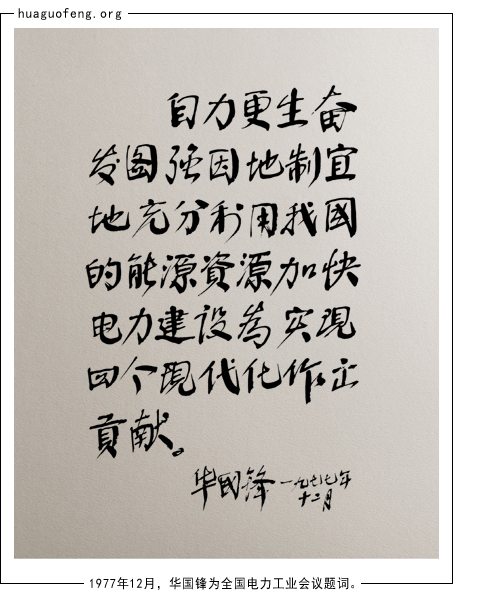 huaguofeng.org
自力更生奋
发图强因地制宜
地充分利用我國
的能源資源加快
电力建设為实现
四个現代化作出
貢献。
华國锋一九七七年
十二月
1977年12月，华国锋为全国电力工业会议题词。